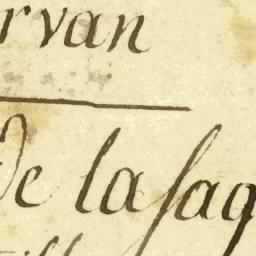 rvan
De lasag